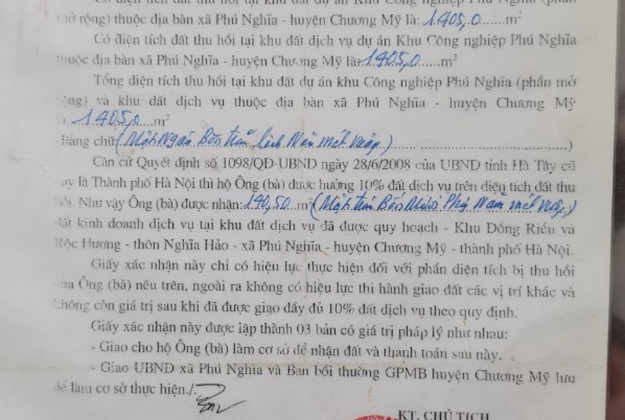 Có diện tích đất thu hồi tại khu đất dự án Khu Công nghiệp Phú Nghĩa (phần
mở rộng) thuộc địa bàn xã Phú Nghĩa - huyện Chương Mỹ là: 1.405,0....m²
Có diện tích đất thu hồi tại khu đất dịch vụ dự án Khu Công nghiệp Phú Nghĩa
thuộc địa bàn xã Phú Nghĩa - huyện Chương Mỹ là: 1405,0....m²
Tổng diện tích thu hồi tại khu đất dự án khu Công nghiệp Phú Nghĩa (phần mở
rộng) và khu đất dịch vụ thuộc địa bàn xã Phú Nghĩa - huyện Chương Mỹ
là 1405,0......m²
Bằng chữ (Một Ngàn Bốn trăm linh Năm mét vuông)
Căn cứ Quyết định số 1098/QD-UBND ngày 28/6/2008 của UBND tỉnh Hà Tây cũ
nay là Thành phố Hà Nội thì hộ Ông (bà) được hưởng 10% đất dịch vụ trên diện tích đất thu
hồi. Như vậy Ông (bà) được nhận: 140,50 m² (Một trăm Bốn Mươi Phẩy Năm mét vuông)
đất kinh doanh dịch vụ tại khu đất dịch vụ đã được quy hoạch - Khu Đồng Riều và
Rộc Hương - thôn Nghĩa Hảo - xã Phú Nghĩa - huyện Chương Mỹ - thành phố Hà Nội.
Giấy xác nhận này chỉ có hiệu lực thực hiện đối với phần diện tích bị thu hồi
của Ông (bà) nêu trên, ngoài ra không có hiệu lực thi hành giao đất các vị trí khác và
không còn giá trị sau khi đã được giao đầy đủ 10% đất dịch vụ theo quy định.
Giấy xác nhận này được lập thành 03 bản có giá trị pháp lý như nhau:
- Giao cho hộ Ông (bà) làm cơ sở để nhận đất và thanh toán sau này.
- Giao UBND xã Phú Nghĩa và Ban bồi thường GPMB huyện Chương Mỹ lưu
để làm cơ sở thực hiện./.
KT. CHỦ TỊCH